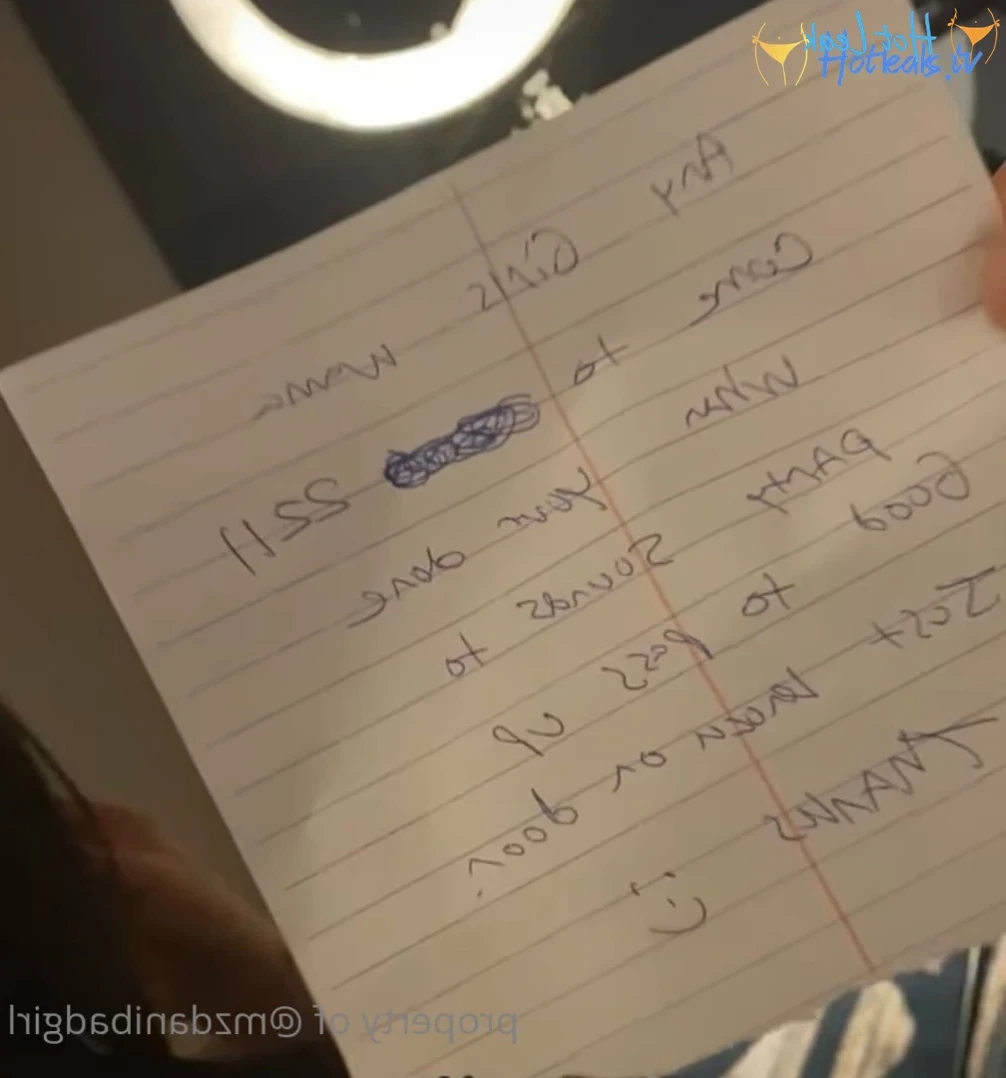 Hot Leak
Hotleaks.tv
Any Girls Wanna
Come to 2211
When your done
Sounds to
Good to pass up
Just knock on door.
THANKS
:)
property of @mzdanibadgirl